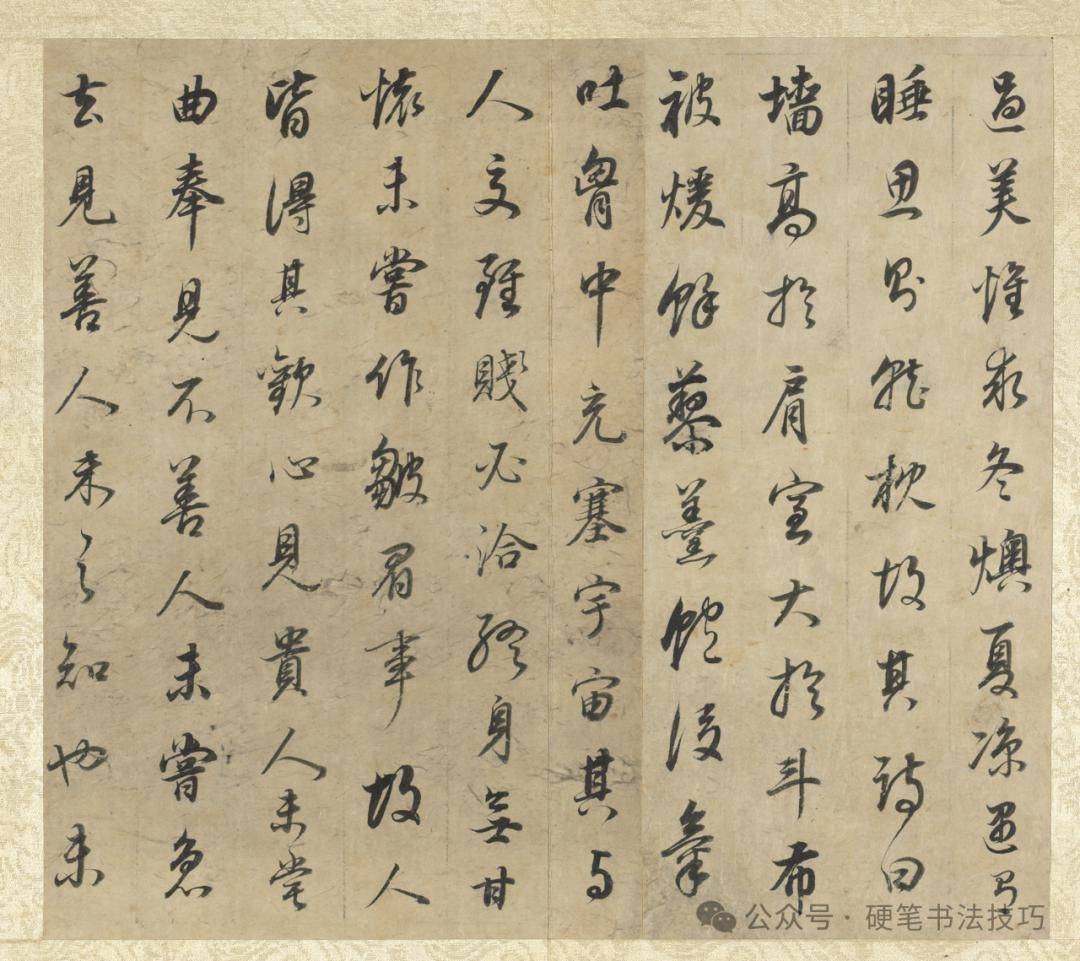 過美惟求冬燠夏涼遇有
睡思則就枕故其詩曰
墻高於肩室大於斗布
被煖餘藜羹飽後氣
吐胷中充塞宇宙其與
人交雖賤必洽終身無甘
懷未嘗作皺眉事故人
皆得其歡心見貴人未嘗
曲奉見不善人未嘗急
去見善人未之知也未
公众号·硬笔书法技巧